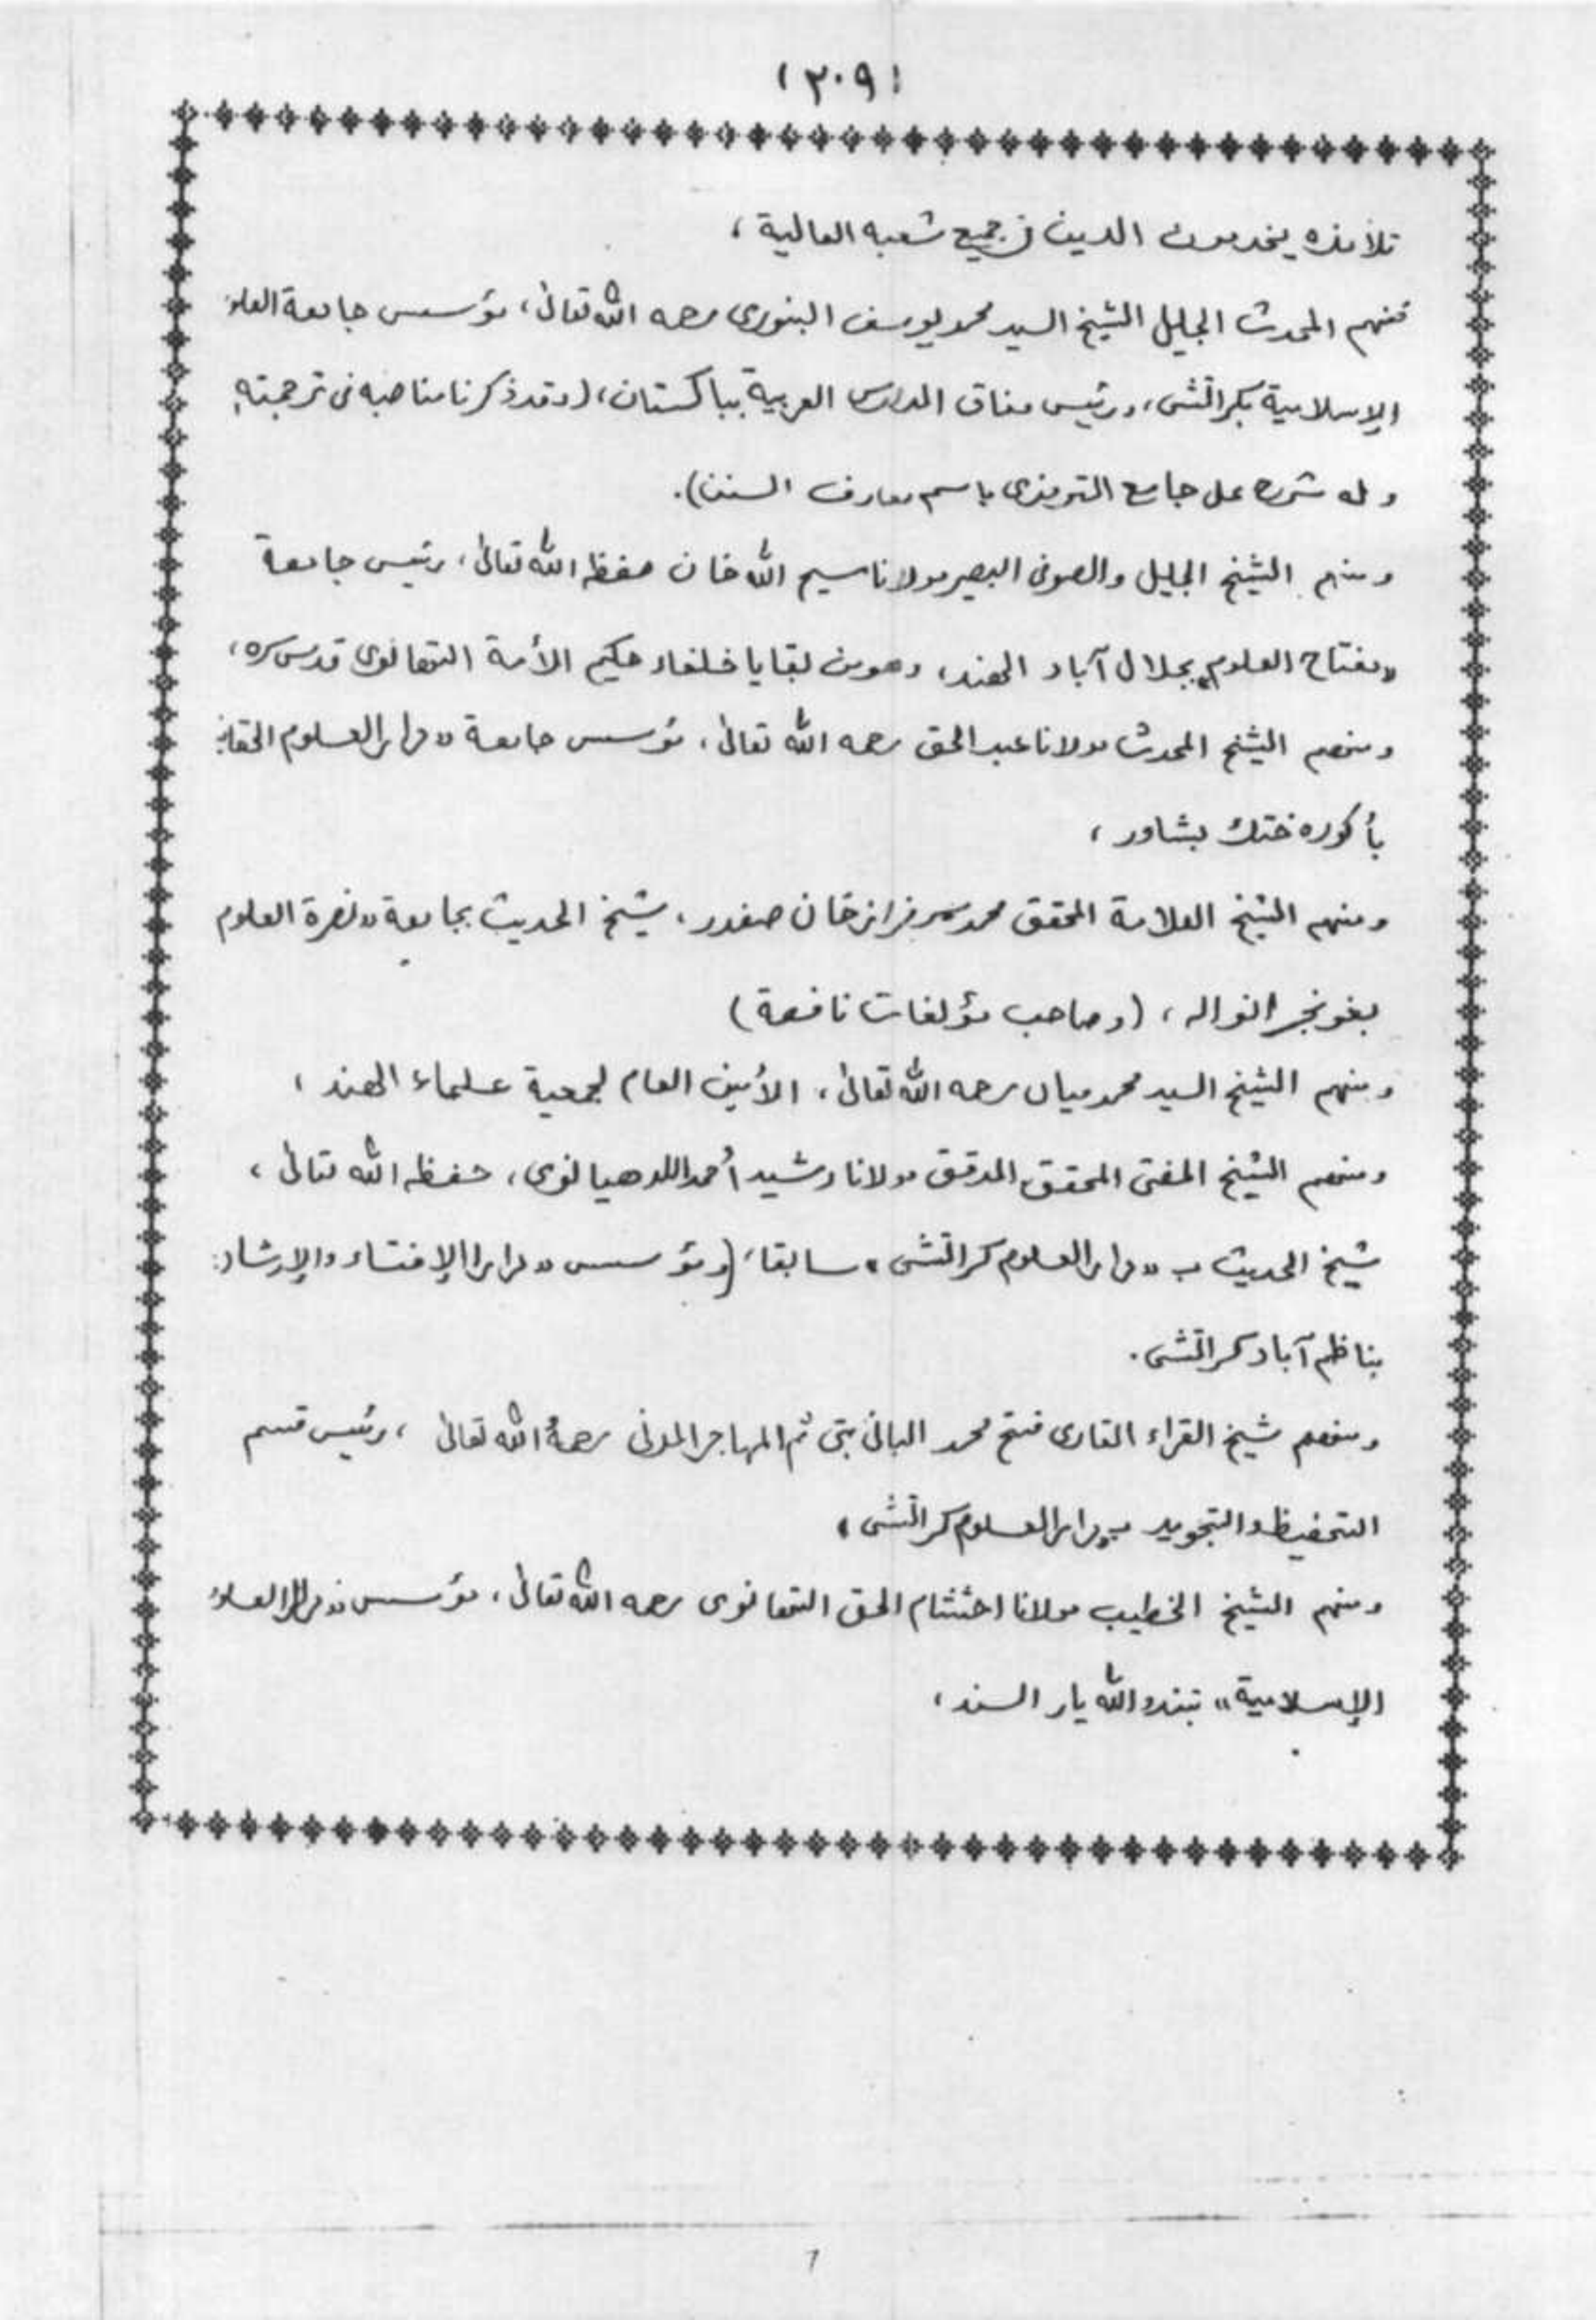 (٢٠٩)
تلامذه يخدمون الدين في جميع شعبه العالية ،
فمنهم المحدث الجليل الشيخ السيد محمد يوسف البنورى رحمه الله تعالى ، مؤسس جامعة
الإسلامية بكراتشى ، ورئيس وفاق المدارس العربية بباكستان ، (وقد ذكرنا مناصبه في ترجمته
وله شرح على جامع الترمذى باسم معارف السنن).
ومنهم الشيخ الجليل والصوفى البصير مولانا مسيح الله خان حفظه الله تعالى ، رئيس جامعة
«مفتاح العلوم» بجلال آباد الهند ، وهو من بقايا خلفاء حكيم الأمة التهانوى قدس سره ،
ومنهم الشيخ المحدث مولانا عبد الحق رحمه الله تعالى ، مؤسس جامعة «دار العلوم
بأكوره ختك بشاور ،
ومنهم الشيخ العلامة المحقق محمد سرفراز خان صفدر ، شيخ الحديث بجامعة «نصرة العلوم
بغونجرانواله ، (وصاحب مؤلفات نافعة)
ومنهم الشيخ السيد محمد ميان رحمه الله تعالى ، الأمين العام لجمعية علماء الهند ،
ومنهم الشيخ المفتى المحقق المدقق مولانا رشيد أحمد اللدهيانوى ، حفظه الله تعالى ،
شيخ الحديث ب «دار العلوم كراتشى» سابقا ، (ومؤسس «دار الإفتاء والإرشاد
بناظم آباد كراتشى .
ومنهم شيخ القراء القارى فتح محمد البانى بتى ثم المهاجر المدنى رحمه الله تعالى ، رئيس قسم
التحفيظ والتجويد ب«دار العلوم كراتشى»
ومنهم الشيخ الخطيب مولانا احتشام الحق التهانوى رحمه الله تعالى ، مؤسس «دار
الإسلامية» تندو الله يار السند ،